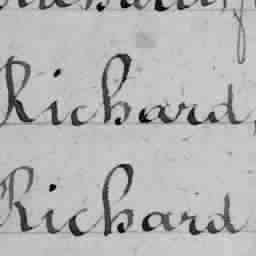 Richard,
Richard